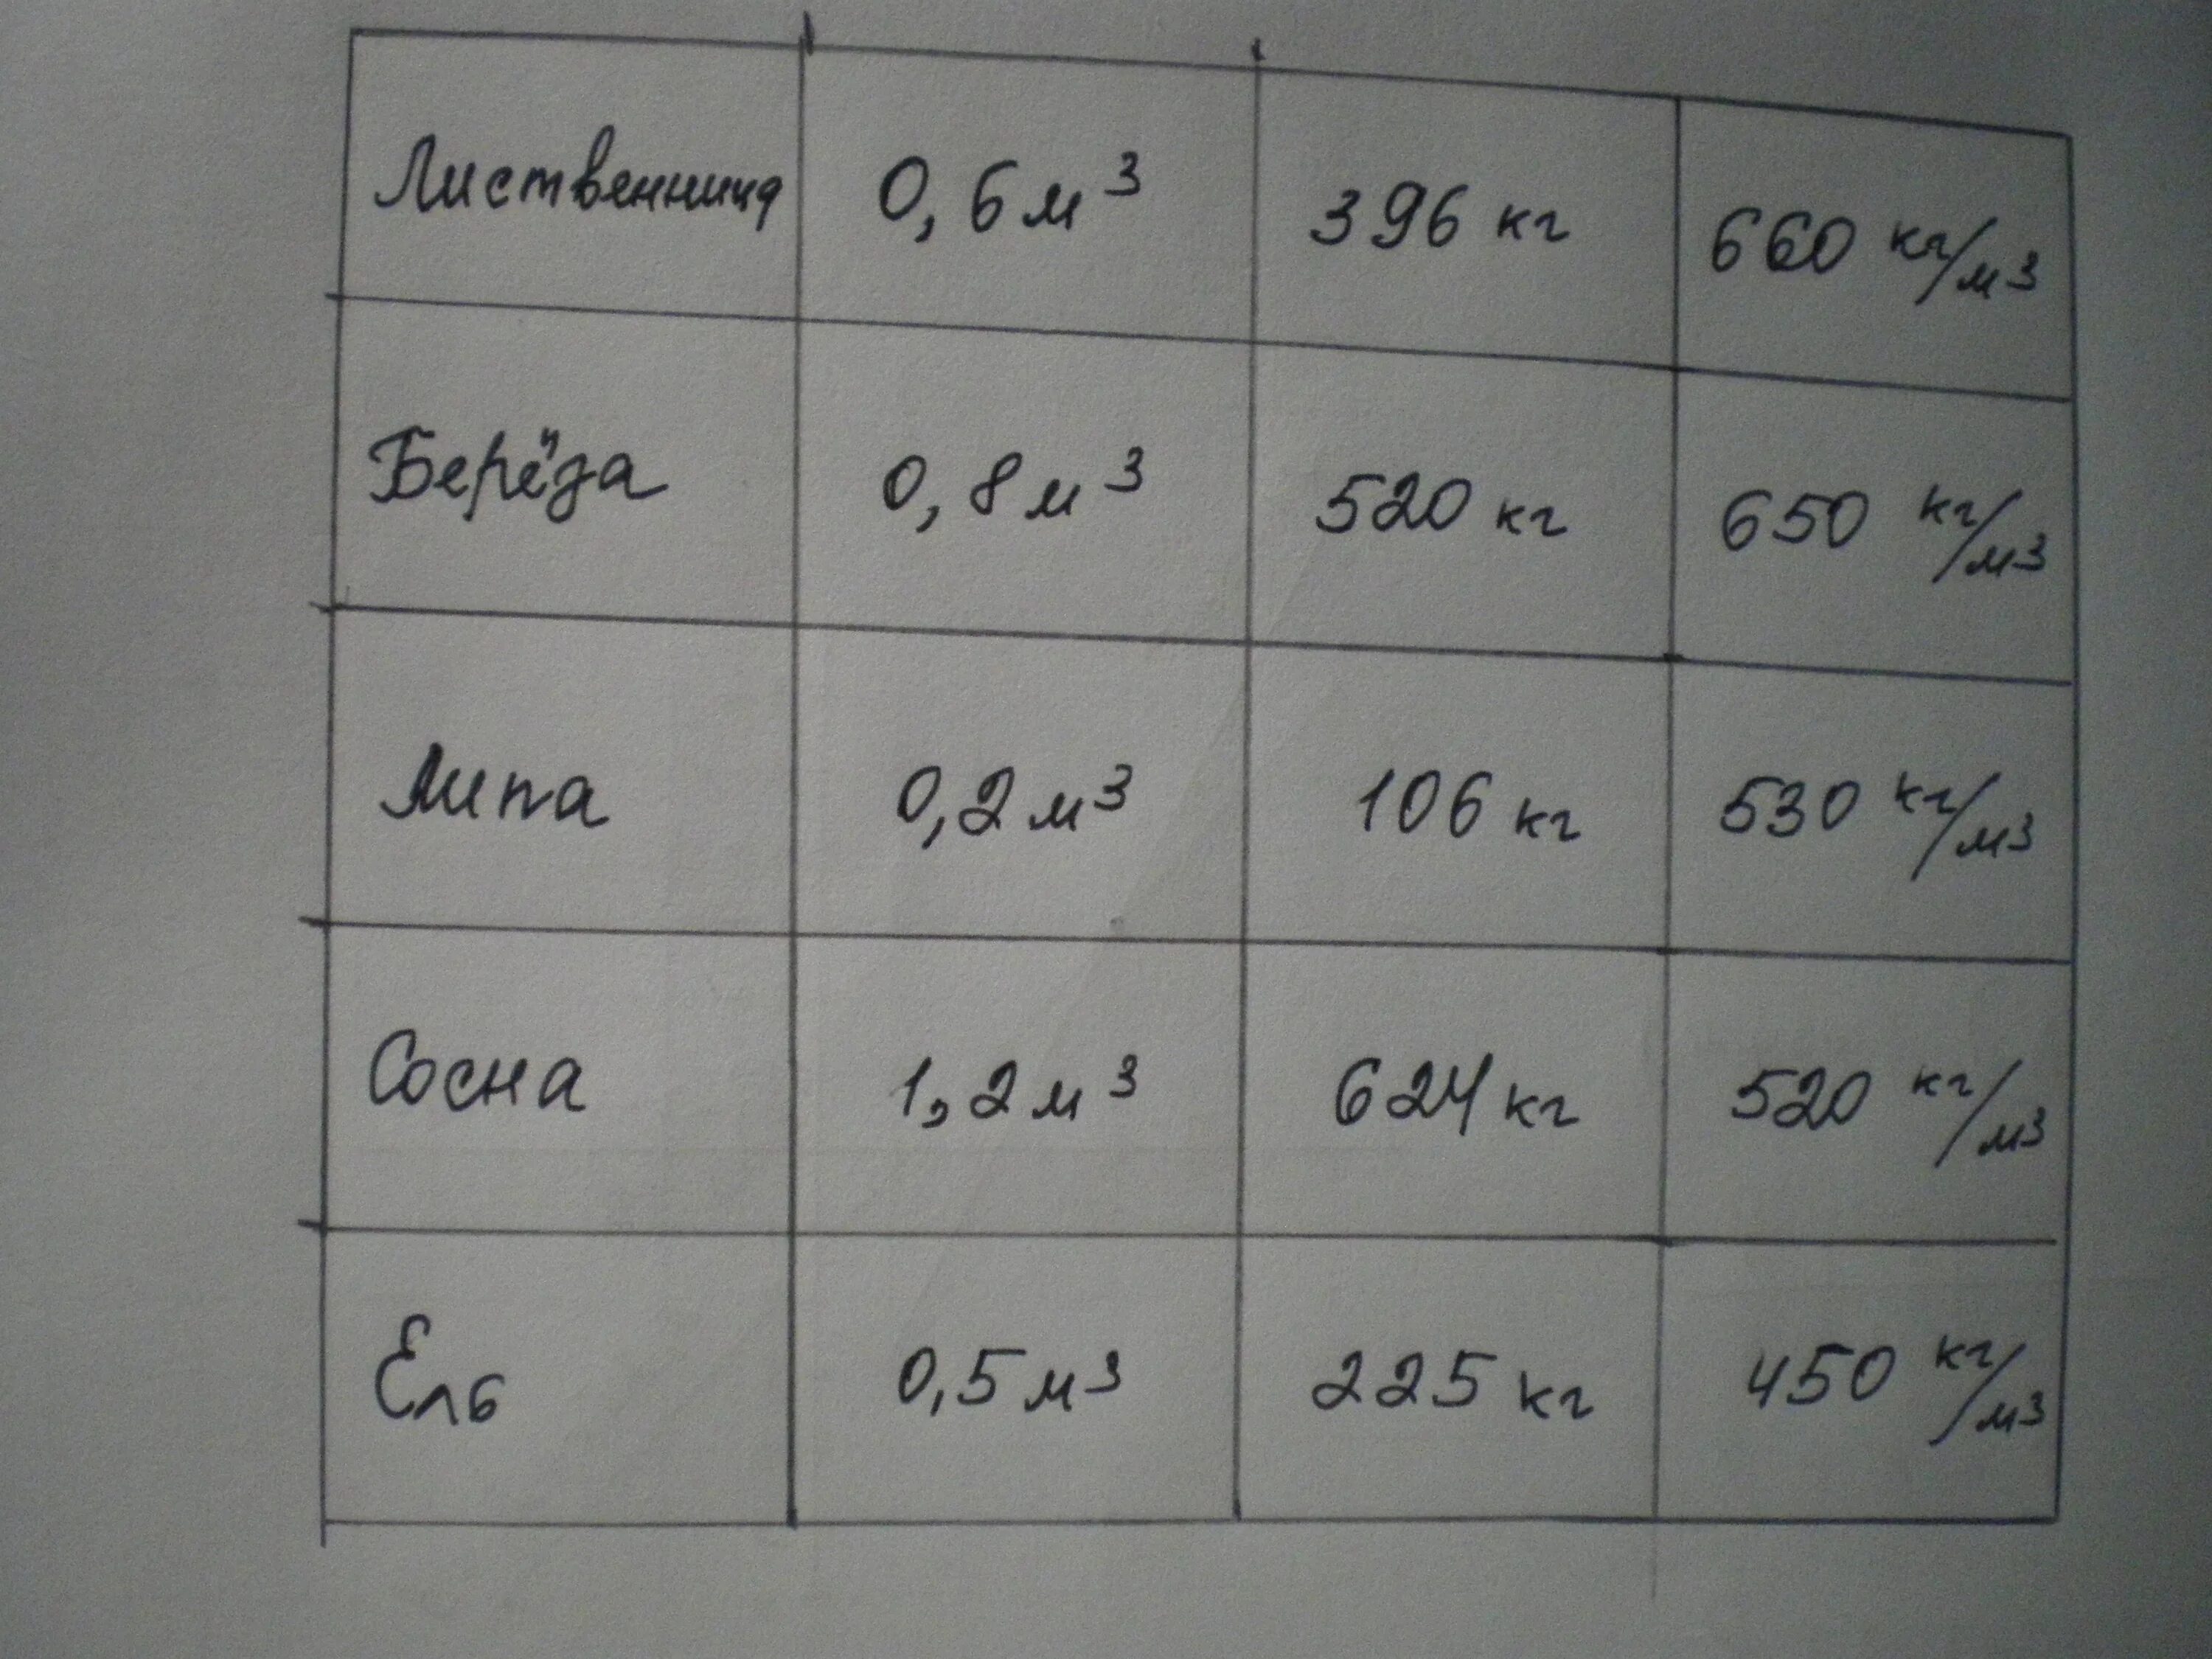 Лиственница 0,6 м³ 396 кг 660 кг/м³
Берёза 0,8 м³ 520 кг 650 кг/м³
Липа 0,2 м³ 106 кг 530 кг/м³
Сосна 1,2 м³ 624 кг 520 кг/м³
Ель 0,5 м³ 225 кг 450 кг/м³